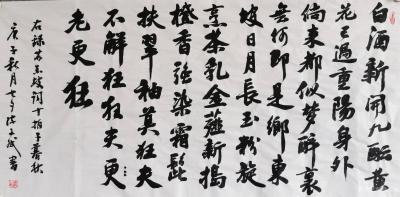 白酒新開九醖黄
花已過重陽身外
倘来都似夢醉裏
無何即是鄉東
坡日月長玉粉旋
烹茶乳金薤新搗
橙香強染霜髭
扶翠袖莫狂夫
不解狂狂夫更
老更狂
右録蘇東坡詞十拍子暮秋
庚子秋月七夕